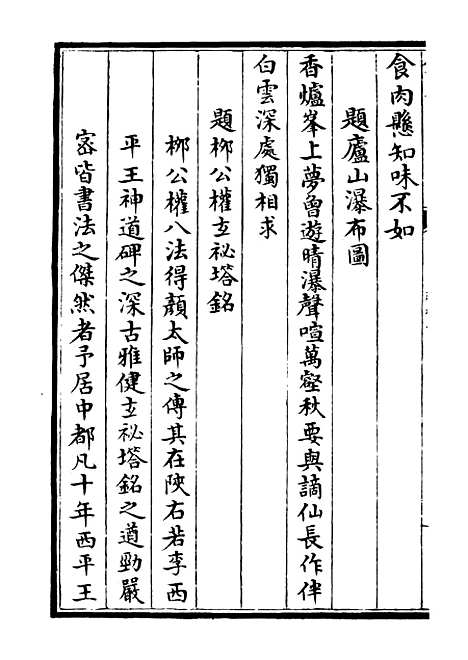 食肉懸知味不如
題廬山瀑布圖
香爐峯上夢曾遊晴瀑聲喧萬壑秋要與謫仙長作伴
白雲深處獨相求
題柳公權玄祕塔銘
柳公權八法得顔太師之傳其在陜右若李西
平王神道碑之深古雅健玄祕塔銘之遒勁嚴
宻皆書法之傑然者予居中都凡十年西平王